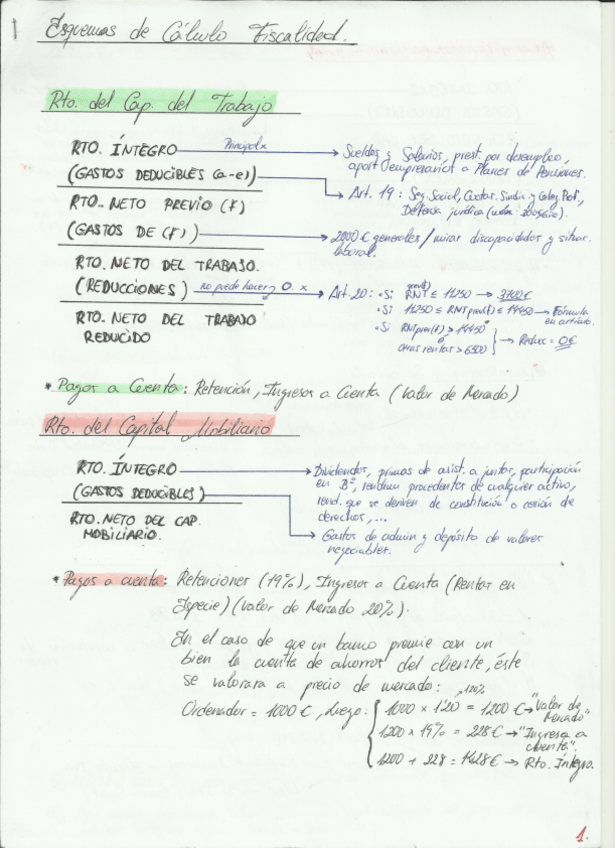 Esquemas de Cálculo Fiscalidad.
Rto. del Cap. del Trabajo
RTO. ÍNTEGRO Principal x → Sueldos y Salarios, prest. por desempleo,
aport. empresarios a Planes de Pensiones.
(GASTOS DEDUCIBLES (a-e)) → Art. 19: Seg. Social, Cuotas Sindic. y Coleg. Prof.,
Defensa jurídica (máx: 300€/año).
RTO. NETO PREVIO (F)
(GASTOS DE (F)) → 2000 € generales / mirar discapacidades y situac.
laboral.
RTO. NETO DEL TRABAJO.
(REDUCCIONES) no puede hacer 0. x → Art. 20: • Si RNT ≤ 11250 → 3700 €
• Si 11250 ≤ RNT prev(f) ≤ 14450 → Fórmula
en artículo.
RTO. NETO DEL TRABAJO
REDUCIDO
• Si RNT prev(f) > 14450
otras rentas > 6500 } → Reducc = 0€
• Pagos a Cuenta: Retención, Ingresos a Cuenta (Valor de Mercado)
Rto. del Capital Mobiliario
RTO. ÍNTEGRO → Dividendos, primas de asist. a juntas, participación
en Bº, rendim procedentes de cualquier activo,
rend. que se deriven de constitución o cesión de
derechos, ...
(GASTOS DEDUCIBLES) → Gastos de admin y depósito de valores
negociables.
RTO. NETO DEL CAP.
MOBILIARIO.
• Pagos a cuenta: Retenciones (19%), Ingresos a Cuenta (Rentas en
Especie) (Valor de Mercado 20%).
En el caso de que un banco premie con un
bien la cuenta de ahorros del cliente, éste
se valorara a precio de mercado:
Ordenador = 1000 €, Luego: { 1000 x 120 = 1200 € → "Valor de
Mercado"
1200 x 19% = 228 € → "Ingreso a
cuenta".
1200 + 228 = 1428 € → Rto. Íntegro.
1.